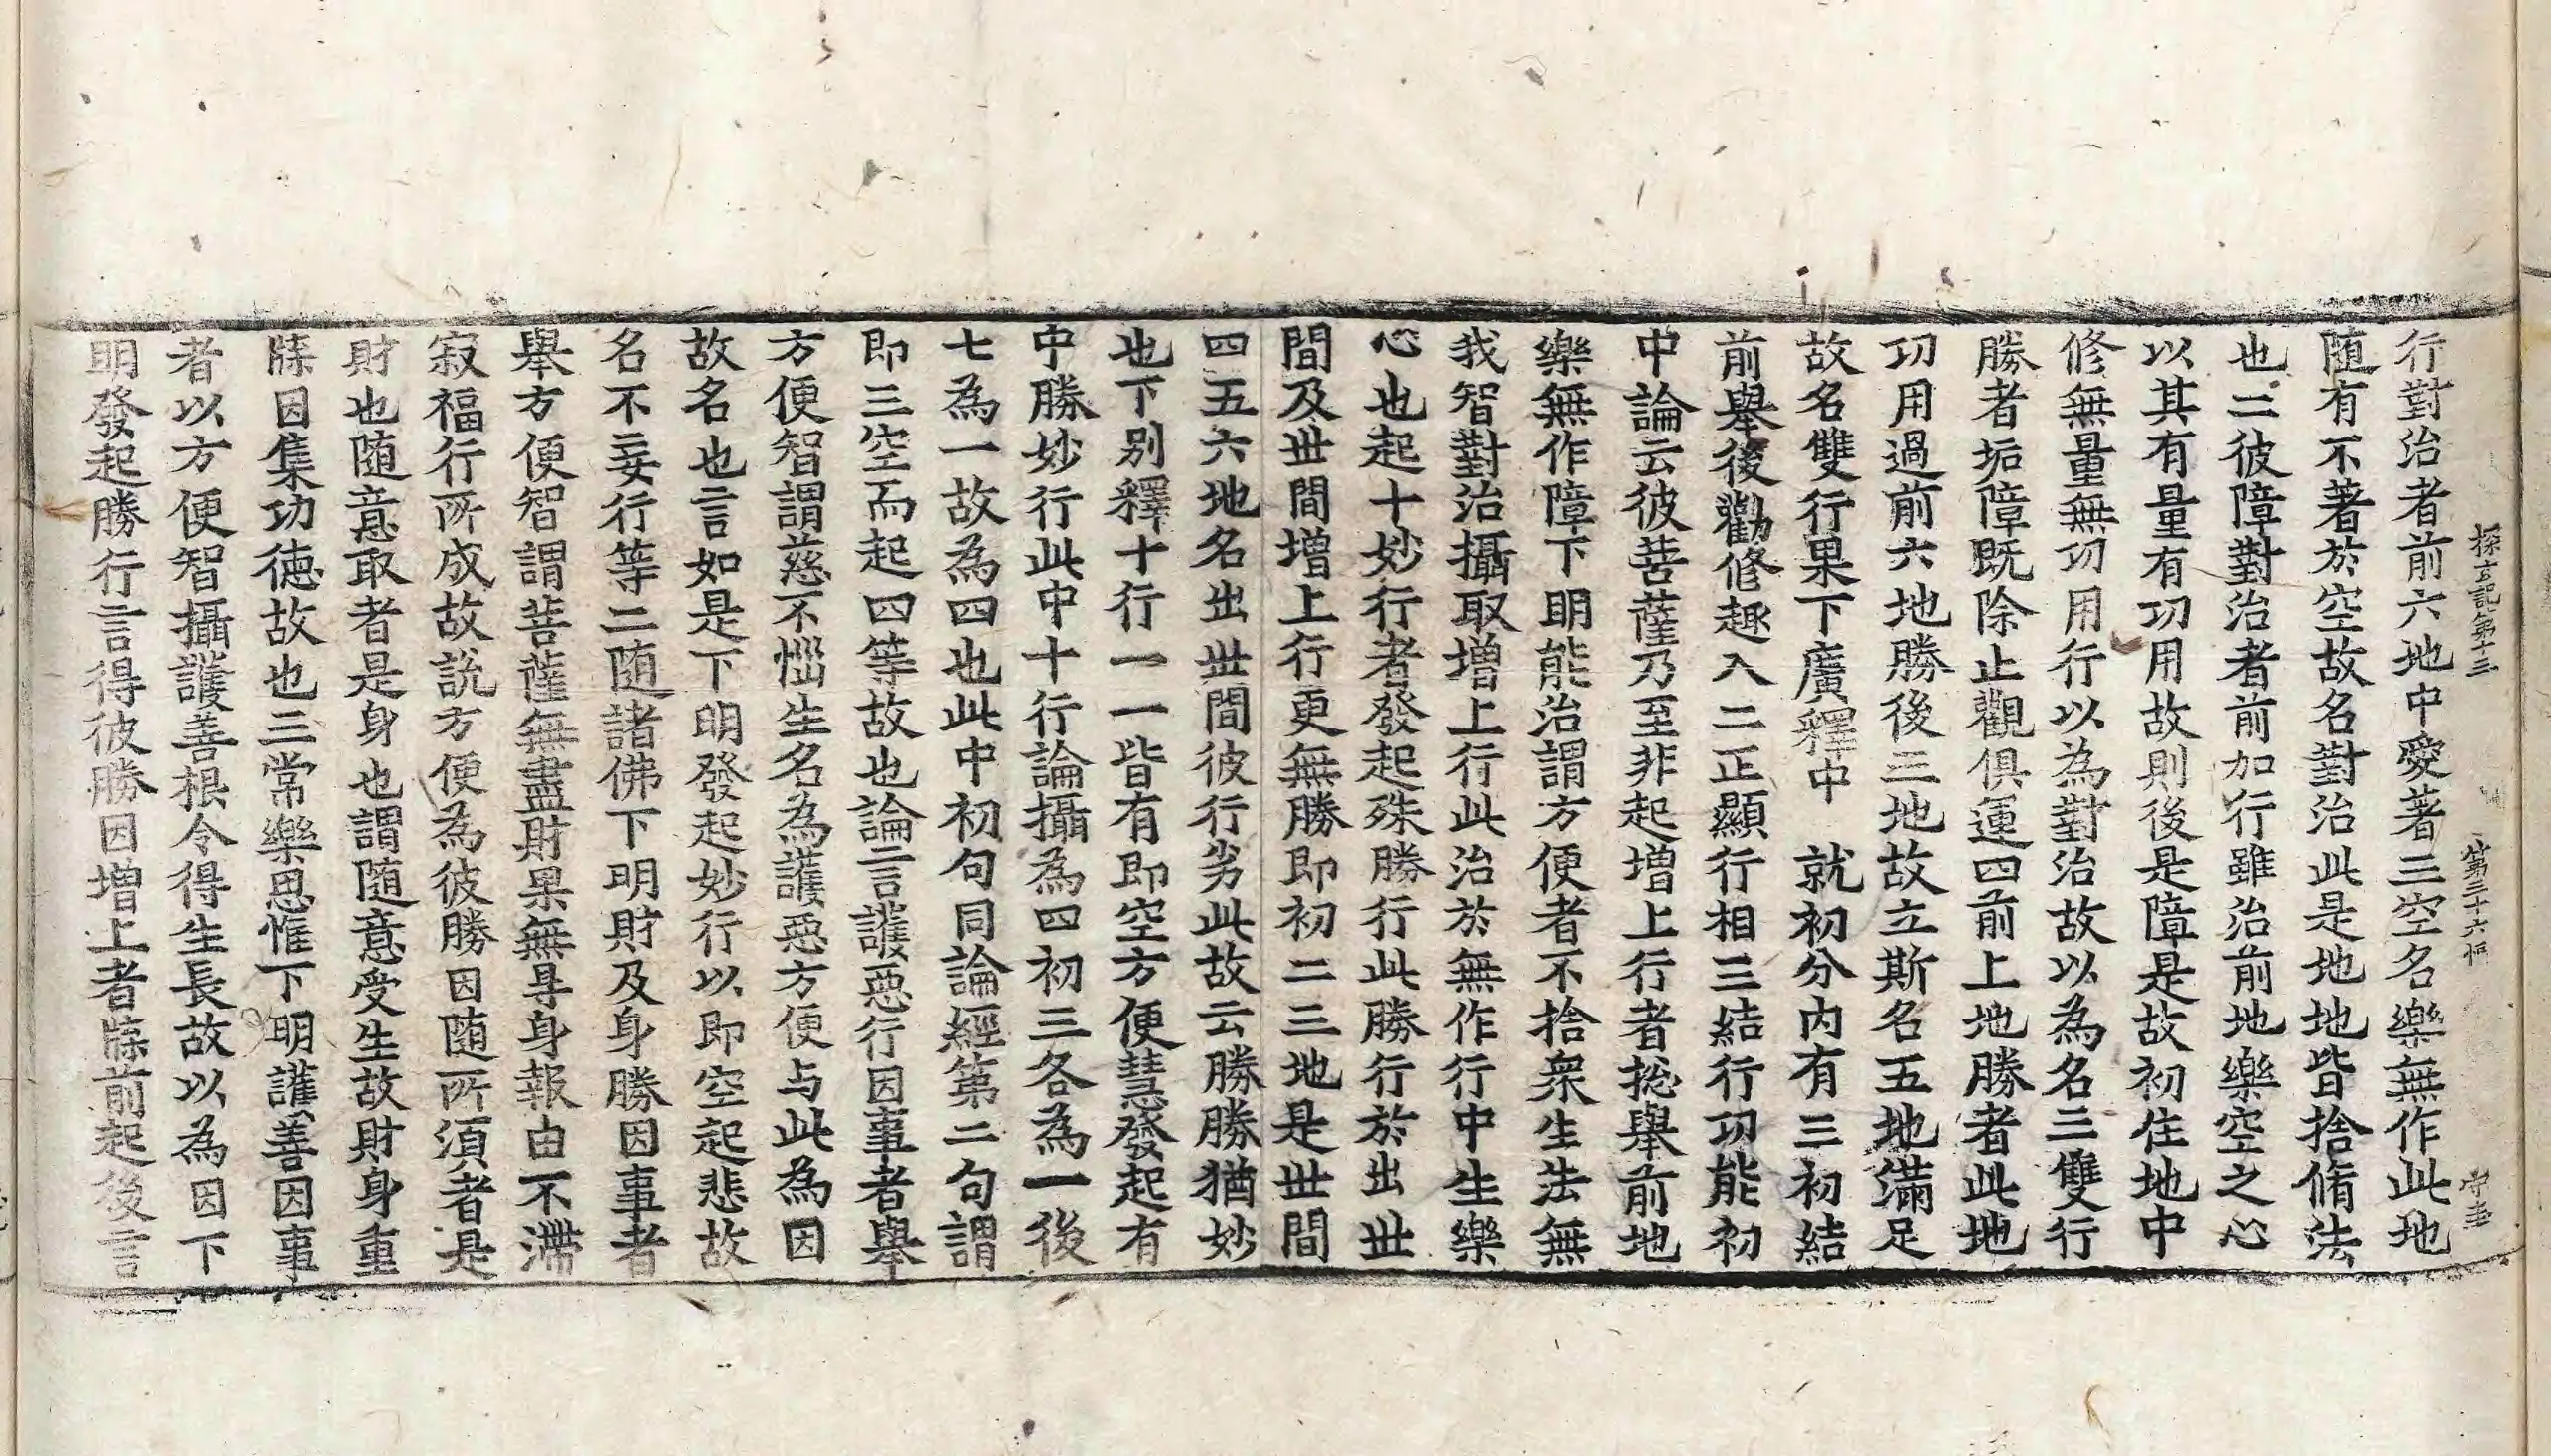 探玄記第十三　第三十六
行對治者前六地中愛著三空名樂無作此地
随有不著於空故名對治此是地地皆捨脩法
也二彼障對治者前加行雖治前地樂空之心
以其有量有功用故則後是障是故初住地中
修無量無㓛用行以為對治故以為名三雙行
勝者垢障既除止觀俱運四前上地勝者此地
㓛用過前六地勝後三地故立斯名五地滿足
故名雙行果下廣釋中　就初分內有三初結
前舉後勸修趣入二正顯行相三結行㓛能初
中論云彼菩薩乃至非起增上行者捴舉前地
樂無作障下明能治謂方便者不捨衆生法無
我智對治攝取增上行此治於無作行中生樂
心也起十妙行者發起殊勝行此勝行於出世
間及世間增上行更無勝即初二三地是世間
四五六地名出世間彼行劣此故云勝勝猶妙
也下别釋十行一一皆有即空方便慧發起有
中勝妙行此中十行論攝為四初三各為一後
七為一故為四也此中初句同論經第二句謂
即三空而起四等故也論言護惡行因事者舉
方便智謂慈不惱生名為護惡方便与此為因
故名也言如是下明發起妙行以即空起悲故
名不妄行等二随諸佛下明財及身勝因事者
舉方便智謂菩薩無盡財果無㝵身報由不滯
寂福行所成故說方便為彼勝因随所須者是
財也随意取者是身也謂随意受生故財身重
牒因集功德故也三常樂思惟下明護善因事
者以方便智攝護善根令得生長故以為因下
明發起勝行言得彼勝因增上者牒前起後言